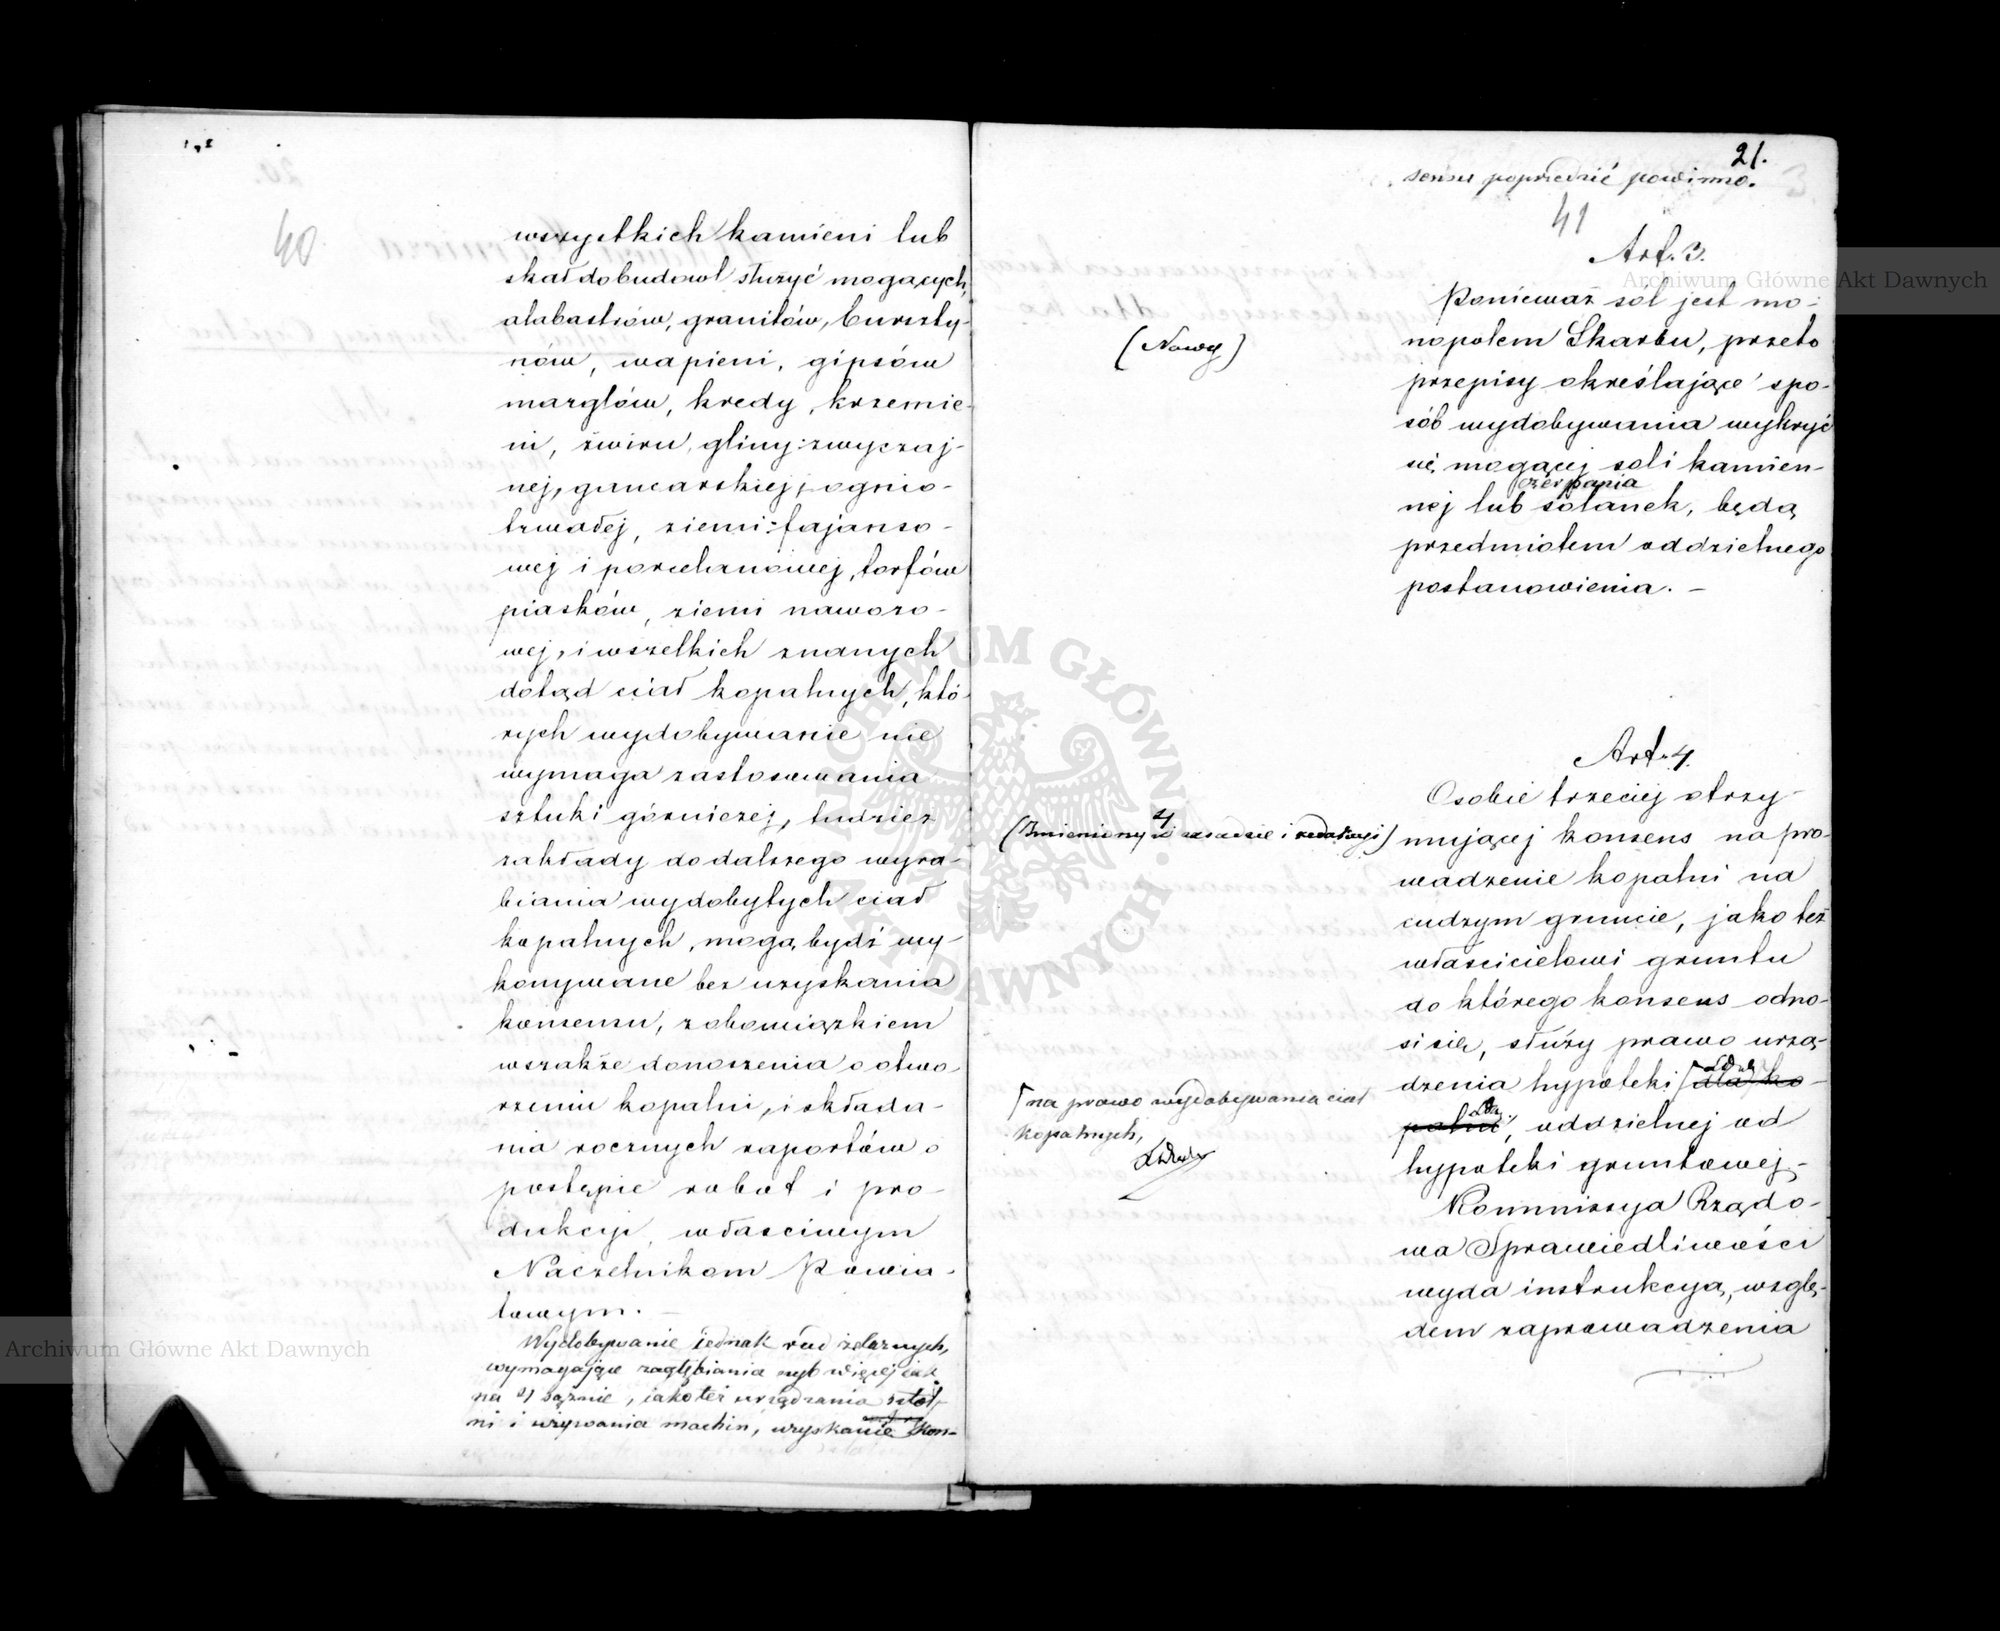 40
wszystkich kamieni lub
skał do budowl służyć mogących,
alabastrów, granitów, burszty-
nów, wapieni, gipsów
marglów, kredy, krzemie-
ni, żwiru, gliny: zwyczaj-
nej, garncarskiej, ognio-
trwałej, ziemi: fajanso-
wej i porcelanowej, torfów
piasków, ziemi nawozo-
wej, i wszelkich znanych
dotąd ciał kopalnych, któ-
rych wydobywanie nie
wymaga zastosowania
sztuki górniczej, tudzież
zakłady do dalszego wyra-
biania wydobytych ciał
kopalnych, mogą bydź wy-
konywane bez uzyskania
konsensu, z obowiązkiem
wszakże donoszenia o otwo-
rzeniu kopalni, i składa-
nia rocznych raportów o
postępie robot i pro-
dukcji, właściwym
Naczelnikom Powia-
towym. —
Wydobywanie jednak rud żelaznych,
wymagające zagłębiania szyb więcej jak
na 4 sążnie, jako też urządzania sztol-
ni i używania machin, uzyskanie kon-
21.
sensu poprzedzić powinno.
41
Art. 3.
(Nowy)
Ponieważ sól jest mo-
nopolem Skarbu, przeto
przepisy określające spo-
sób wydobywania wykryć
się mogącej soli kamien-
czerpania
nej lub solanek, będą
przedmiotem oddzielnego
postanowienia. —
Art. 4.
(Zmieniony w zasadzie i redakcyi)
Osobie trzeciej otrzy-
mującej konsens na pro-
wadzenie kopalni na
cudzym gruncie, jako też
właścicielowi gruntu
do którego konsens odno-
si się, służy prawo urzą-
dzenia hypoteki dla ko-
palni, oddzielnej od
hypoteki gruntowej,-
na prawo wydobywania ciał
kopalnych,
Kommissya Rządo-
wa Sprawiedliwości
wyda instrukcyą, wzglę-
dem zaprowadzenia
Archiwum Główne Akt Dawnych
Archiwum Główne Akt Dawnych
ARCHIWUM GŁÓWNE AKT DAWNYCH